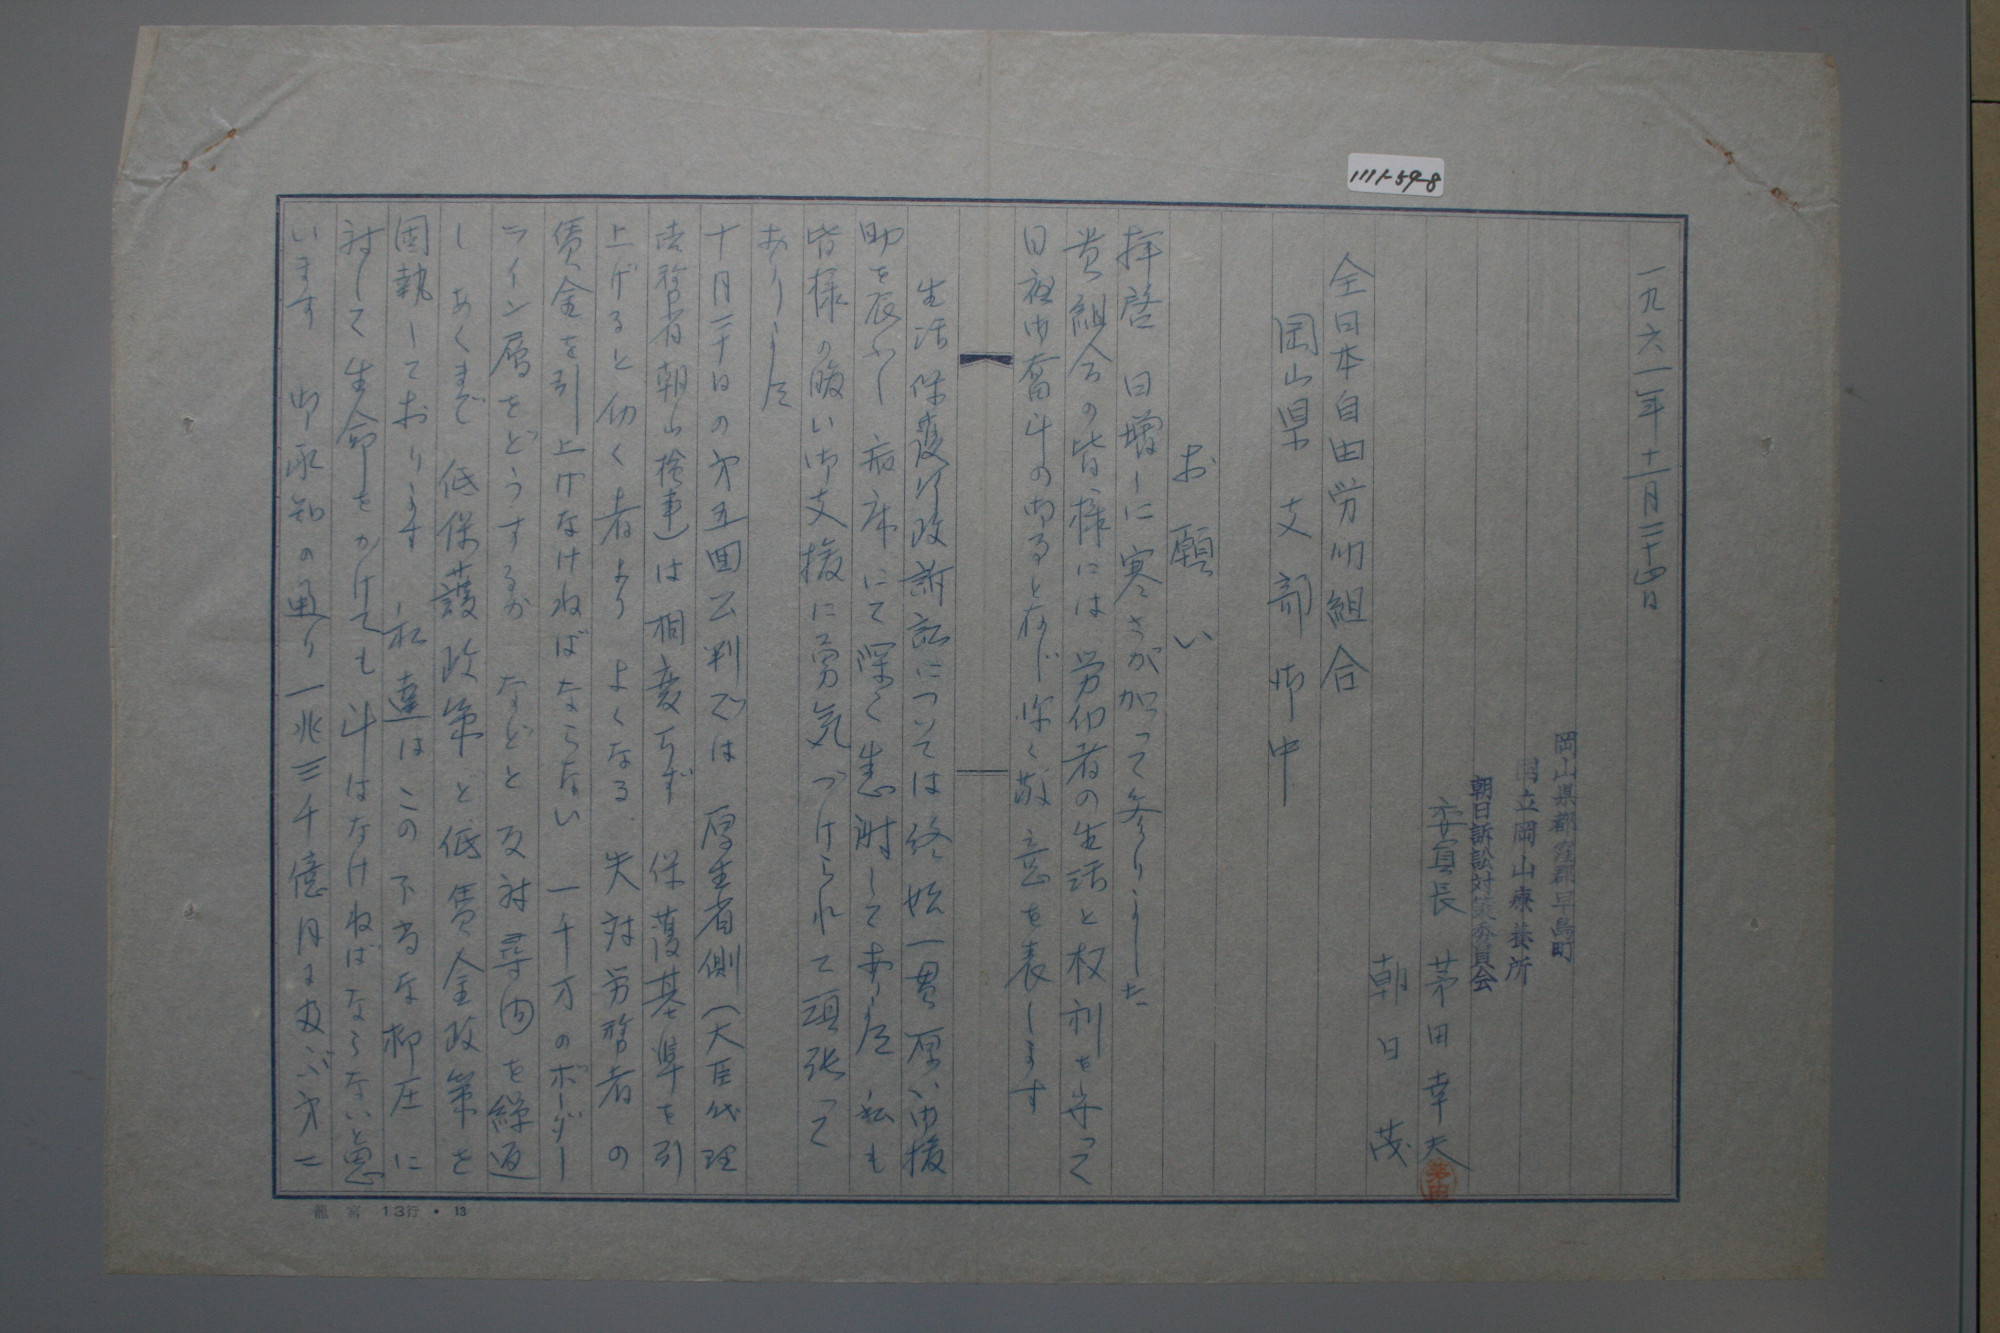 1111-59-8
一九六一年十一月二十四日
岡山県都窪郡早島町
国立岡山療養所
朝日訴訟対策委員会
委員長 茅田幸夫
茅田
朝日茂
全日本自由労働組合
岡山県支部御中
お願い
拝啓 日増しに寒さが加って参りました
貴組合の皆様には労仂者の生活と权利を守って
日夜御奮斗の御事と存じ深く敬意を表します
生活保護行政訴訟については終始一貫厚い御援
助を辰にし病床にて深く感謝してあります 私も
皆様の暖い御支援に勇気づけられて頑張って
おります
十月二十日の第五回公判では 厚生省側(大臣代理
法務省朝山検事)は相変らず 保護基準を引
上げると仂く者より よくなる 失対労務者の
賃金を引上げなければならない 一千万のボーダー
ライン層をどうするか などと反対尋問を繰返
し あくまで 低保護政策と低賃金政策を
固執しております 私達はこの不当な抑圧に
対して生命をかけても斗はなければならないと思
います 御承知の通り一兆三千億円に及ぶ第二
龍宮 13行・13